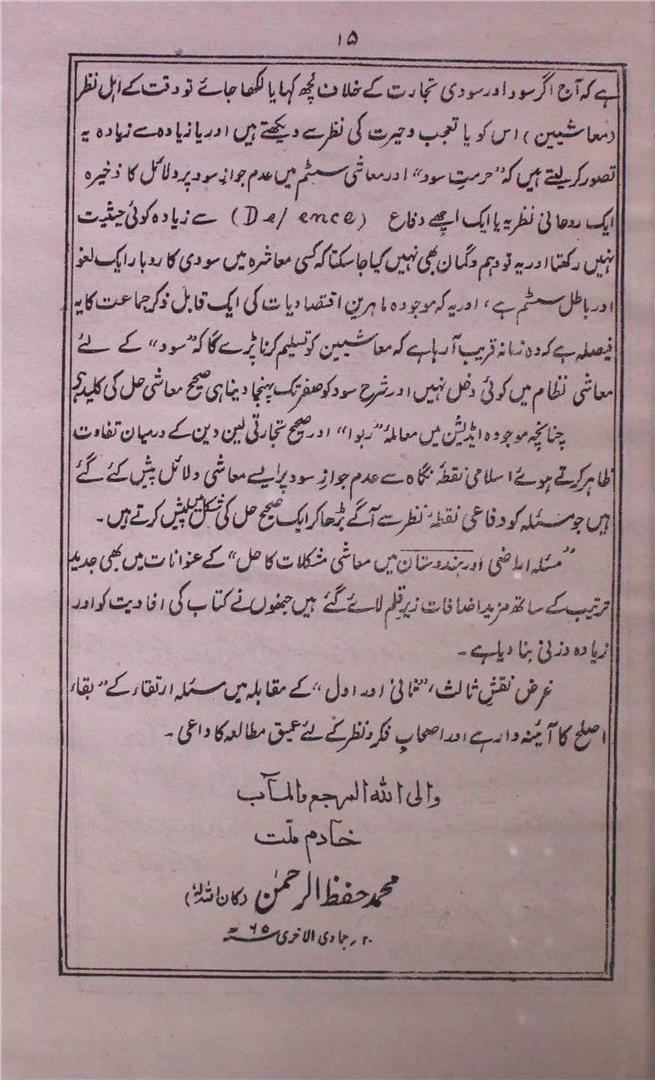 ۱۵
ہے کہ آج اگر سود اور سودی تجارت کے خلاف کچھ کہا یا لکھا جائے تو وقت کے اہل نظر
(معاشیین) اس کو یا تعجب وحیرت کی نظر سے دیکھتے ہیں اور یا زیادہ سے زیادہ یہ
تصور کرلیتے ہیں کہ "حرمتِ سود" اور معاشی سسٹم میں عدم جوازِ سود پر دلائل کا ذخیرہ
ایک روحانی نظریہ یا ایک اچھے دفاع (De/ence) سے زیادہ کوئی حیثیت
نہیں رکھتا اور یہ تو وہم وگمان بھی نہیں کیا جاسکتا کہ کسی معاشرہ میں سودی کاروبار ایک لغو
اور باطل سسٹم ہے، اور یہ کہ موجودہ ماہرینِ اقتصادیات کی ایک قابل ذکر جماعت کا یہ
فیصلہ ہے کہ وہ زمانہ قریب آرہا ہے کہ معاشیین کو تسلیم کرنا پڑے گا کہ "سود" کے لئے
معاشی نظام میں کوئی دخل نہیں اور شرح سود کو صفر تک پہنچا دینا ہی صحیح معاشی حل کی کلید ہے
چنانچہ موجودہ اڈیشن میں معاملۂ "ربوا" اور صحیح تجارتی لین دین کے درمیان تفاوت
ظاہر کرتے ہوئے اسلامی نقطۂ نگاہ سے عدم جوازِ سود پر ایسے معاشی دلائل پیش کئے گئے
ہیں جو مسئلہ کو دفاعی نقطۂ نظر سے آگے بڑھا کر ایک صحیح حل کی شکل میں پیش کرتے ہیں۔
"مسئلہ اراضی اور ہندوستان میں معاشی مشکلات کا حل" کے عنوانات میں بھی جدید
ترتیب کے ساتھ مزید اضافات زیر قلم لائے گئے ہیں جنھوں نے کتاب کی افادیت کو اور
زیادہ وزنی بنا دیا ہے۔
غرض نقشِ ثالث، "ثانی اور اول" کے مقابلہ میں مسئلہ ارتقاء کے "بقاء
اصلح کا آئینہ دار ہے اور اصحابِ فکر و نظر کے لئے عمیق مطالعہ کا داعی۔
والی اللہ المرجع والمآب
خادم ملت
محمد حفظ الرحمٰن (کان اللہ لہٗ)
۲۰؍جمادی الاخری ۶۵ھ